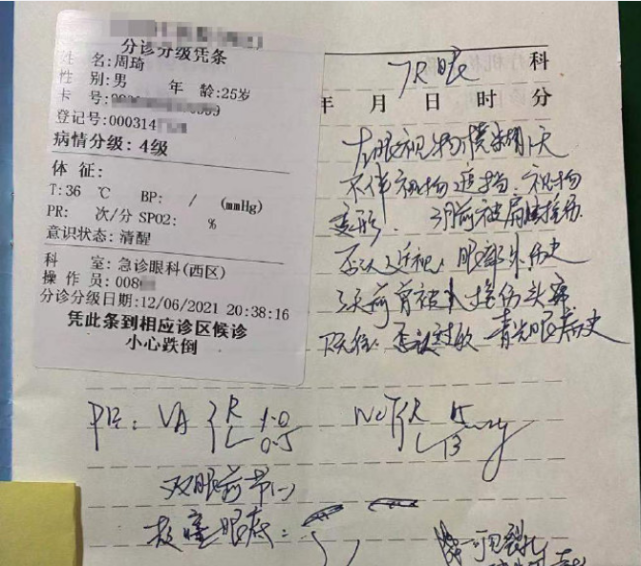 分诊分级凭条
姓 名:周琦
性 别:男 年 龄:25岁
卡 号:
登记号:000314
病情分级:4级
体 征:
T:36 ℃ BP: / (mmHg)
PR: 次/分 SPO2: %
意识状态:清醒
科 室:急诊眼科(西区)
操 作 员:008
分诊分级日期:12/06/2021 20:38:16
凭此条到相应诊区候诊
小心跌倒
眼 科
年 月 日 时 分
左眼视物模糊1天
不伴视物遮挡.视物
变形.
否认近视,眼部外伤史
3天前曾被人撞伤头部
既往:否认过敏 青光眼病史
VA R 1.0
L 0.5
NCT R 15 mmHg
L 13
双眼前节(-)
散瞳眼底:
可见裂孔